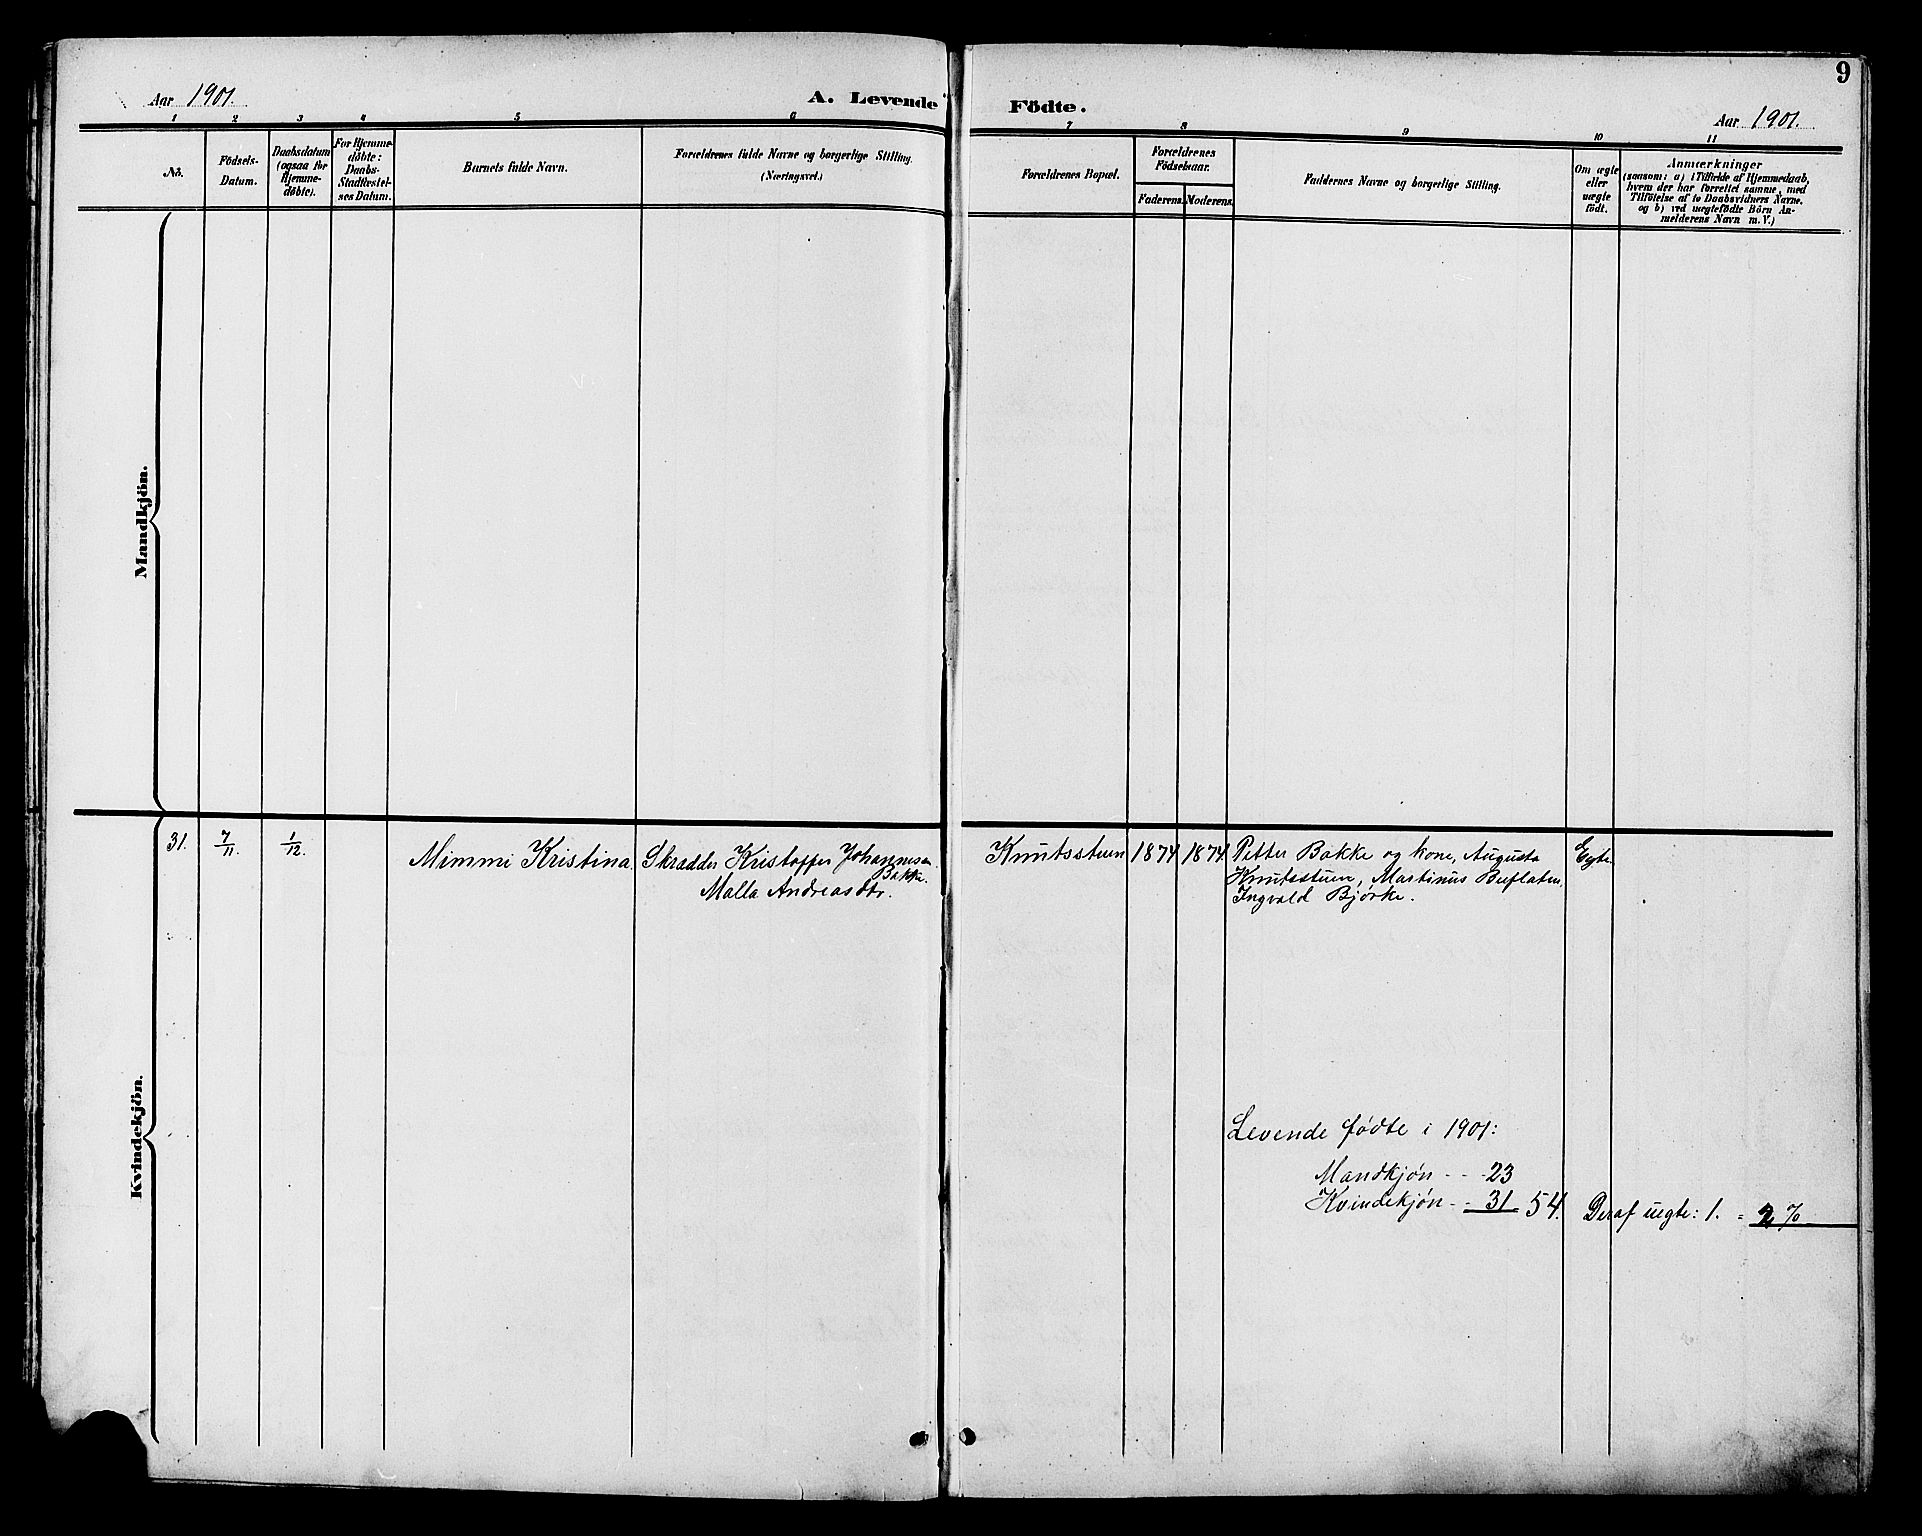 9
Aar 1901. A. Levende Födte. Aar 1901.
1 2 3 4 5 6 7 8 9 10 11
No.
Födsels-
Datum.
Daabsdatum
(ogsaa for
Hjemme-
döbte).
For Hjemme-
döbte:
Daabs-
Stadfæstel-
ses Datum.
Barnets fulde Navn.
Forældrenes fulde Navne og borgerlige Stilling.
(Næringsvei.)
Forældrenes Bopæl.
Forældrenes
Födselsaar.
Faderens. Moderens.
Faddernes Navne og borgerlige Stilling.
Om ægte
eller
uægte
födt.
Anmærkninger
(saasom: a) i Tilfælde af Hjemmedaab,
hvem der har forrettet samme, med
Tilföielse af to Daabsvidners Navne.
og b) ved uægtefödte Börn An-
melderens Navn m. V.)
Mandkjön.
Kvindekjön.
31. 7/11 1/12. Mimmi Kristina. Skrædder Kristoffer Johannesen
Bakke.
Malla Andreasdtr.
Knutsstuen 1874 1874 Petter Bakke og kone, Augusta
Knutsstuen, Martinus Buflaten,
Ingvald Bjørke.
Egte.
Levende fødte i 1901:
Mandkjøn - - 23
Kvindekjøn - - 31 54. Deraf uegte: 1. = 2 %